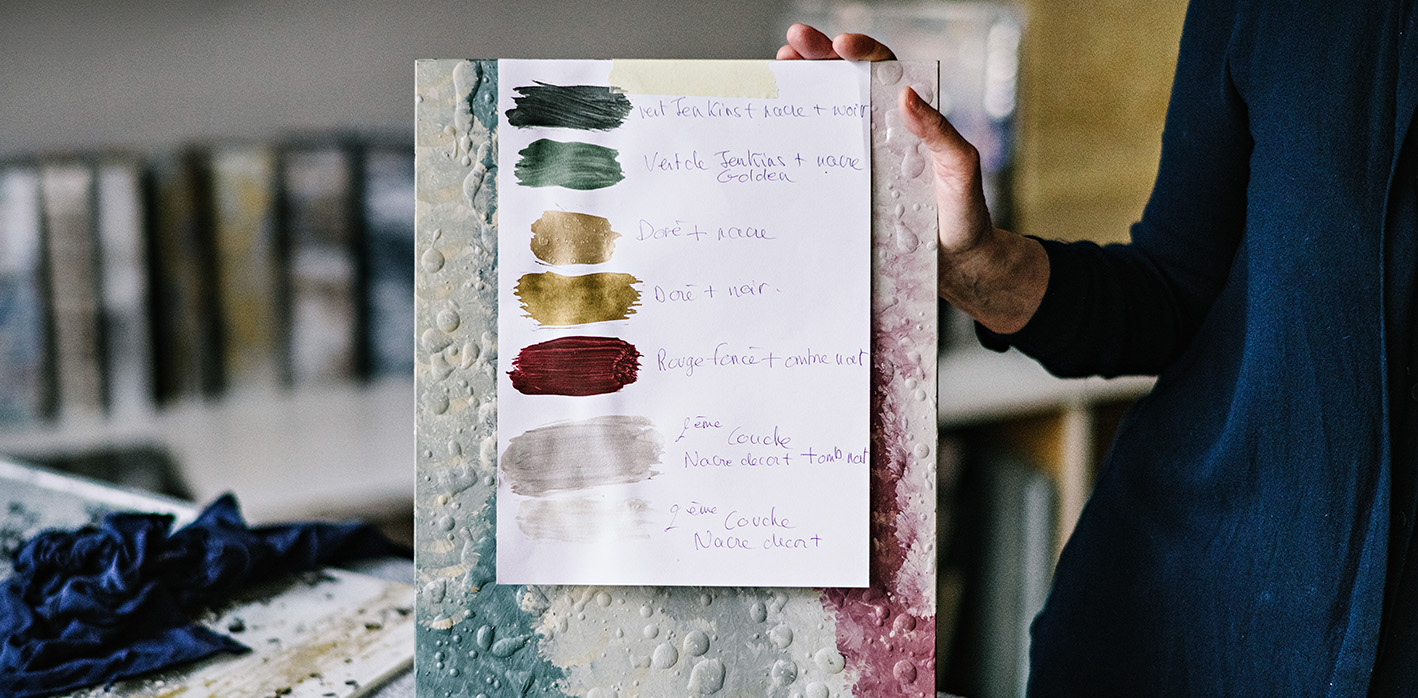 vert Jenkins + nacre + noir
Vert de Jenkins + nacre
Golden
Doré + nacre
Doré + noir.
Rouge foncé + ombre nat
2ème Couche
Nacre decort + omb. nat
2ème Couche
Nacre decort